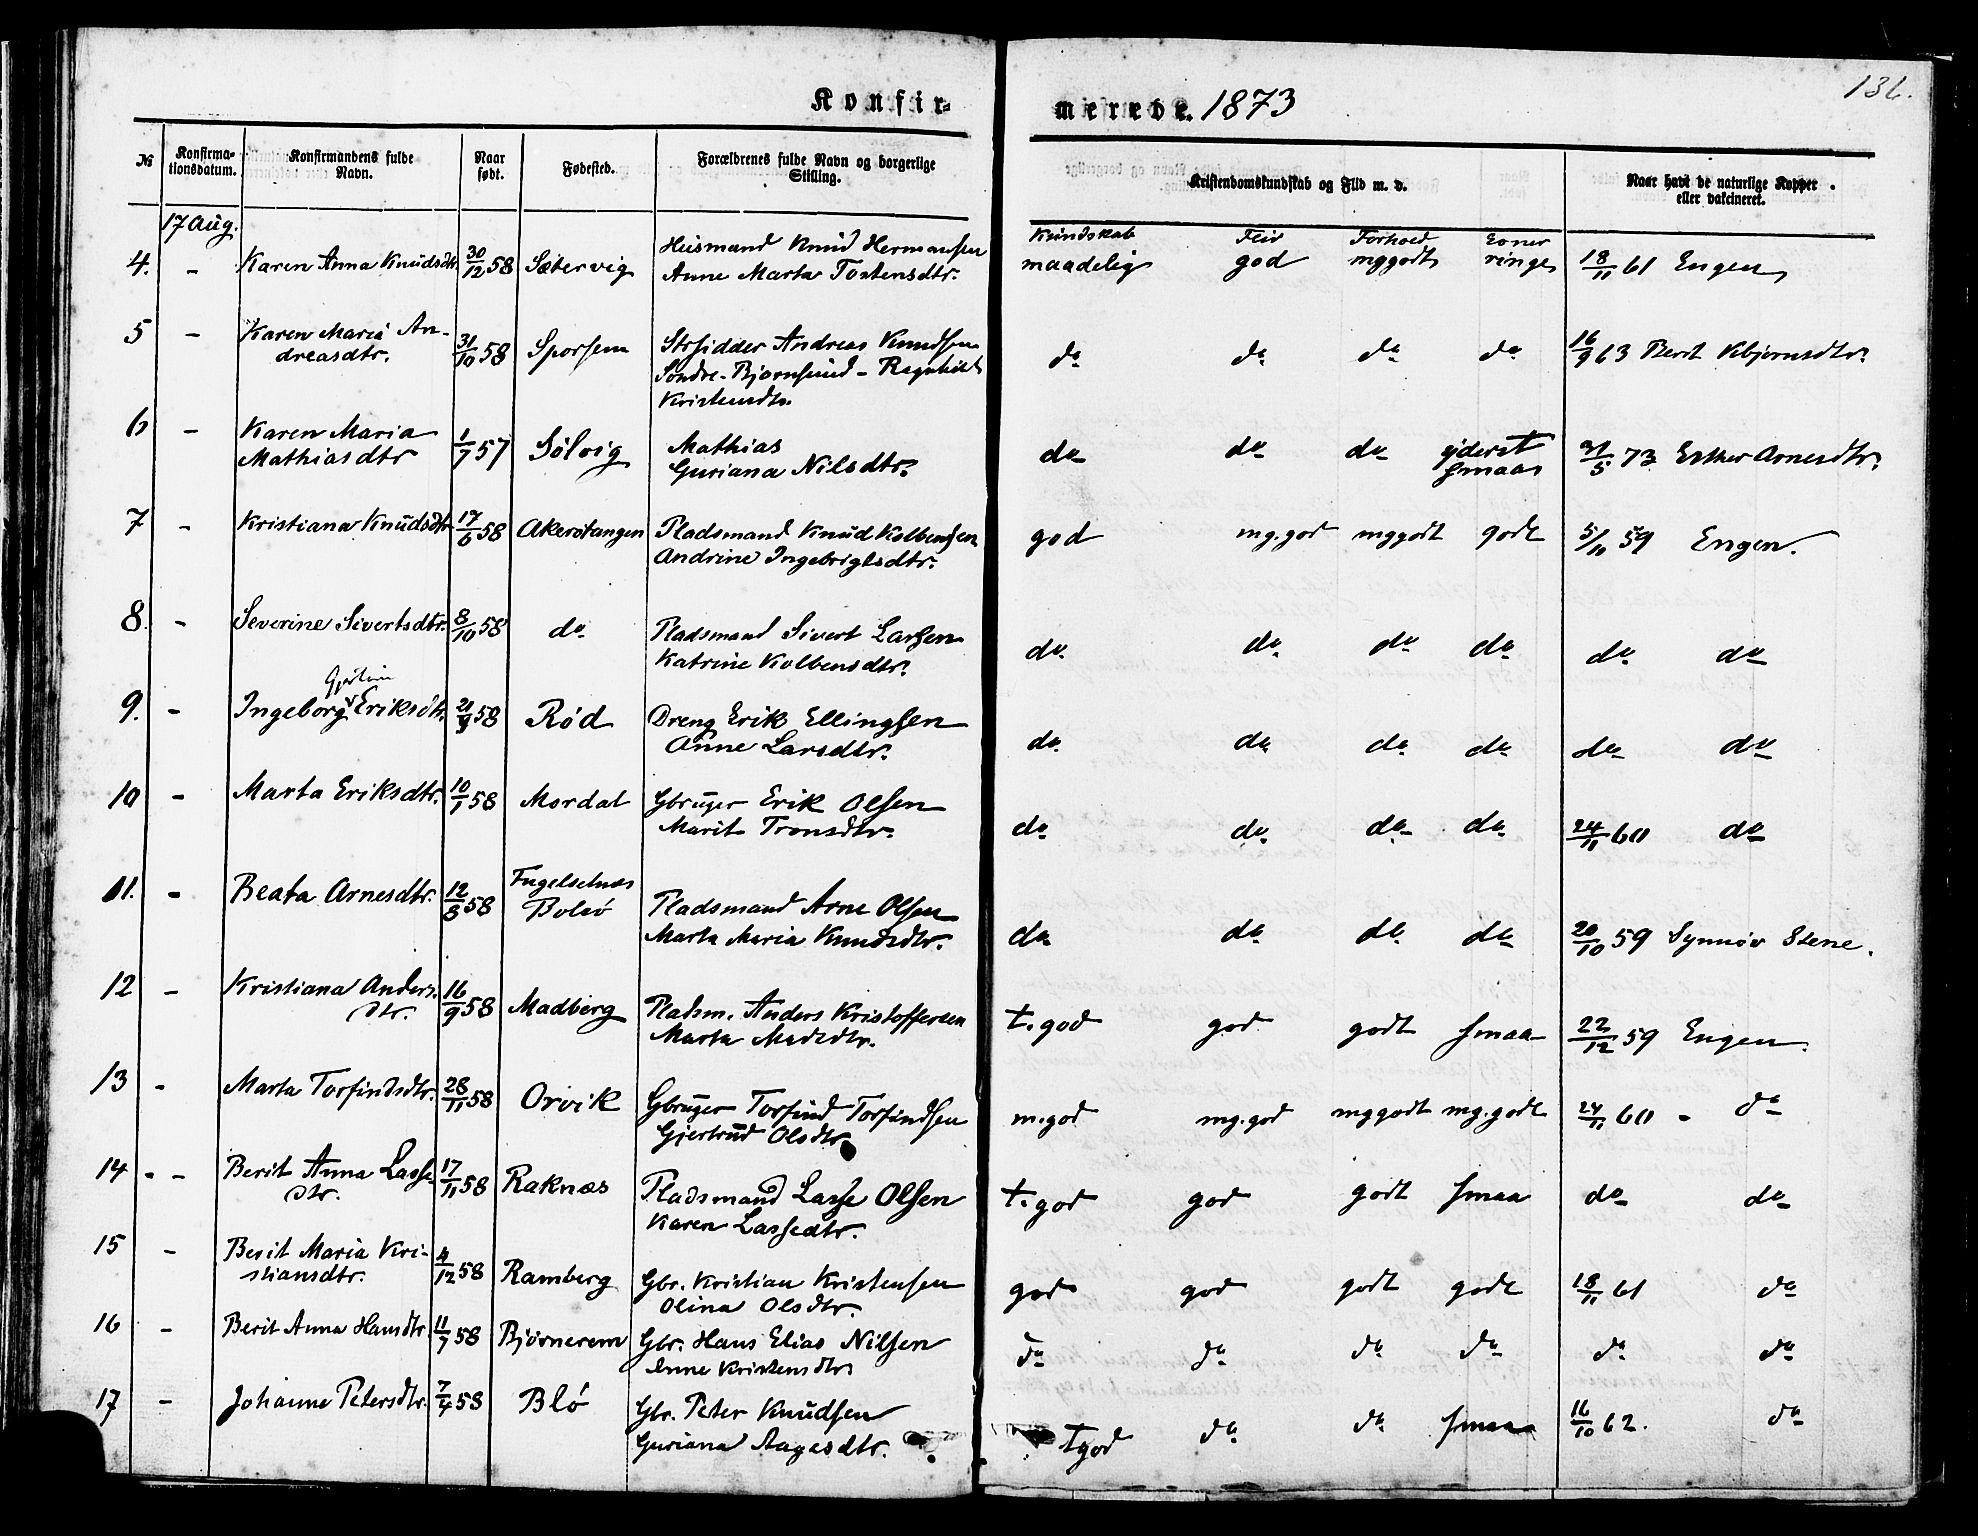 136.
Konfir-
merede. 1873
№
Konfirma-
tionsdatum.
Konfirmandens fulde
Navn.
Naar
født.
Fødested.
Forældrenes fulde Navn og borgerlige
Stilling.
Kristendomskundskab og Flid m. v.
Naar havt de naturlige Kopper
eller vakcineret.
17 Aug.
Kundskab Flid Forhold Evner
4. - Karen Anna Knudsdtr. 30/12 58 Sætervig Husmand Knud Hermansen
Anne Marta Tostensdtr. maadelig god mggodt ringe 18/11 61 Engen
5 - Karen Maria An-
dreasdtr. 31/10 58 Sporsem Strsidder Andreas Knudsen
Søndre-Bjørnsund - Ragnhild
Kristensdtr. do do do do 16/9 63 Berit Kbjørnsdtr.
6 - Karen Maria
Mathiasdtr 1/7 57 Sølvig Mathias
Guriana Nilsdtr. do do do yderst
smaa 21/5 73 Esther Arnesdtr.
7 - Kristiana Knudsdtr 17/6 58 Akerøtangen Pladsmand Knud Kolbensen
Andrine Ingebrigtsdtr. god mg.god mggodt godt 5/11 59 Engen.
8. - Severine Sivertsdtr. 8/10 58 do Pladsmand Sivert Larsen
Katrine Kolbensdtr. do. do. do do do. do
9. - Ingeborg Eriksdtr. 21/9 58 Rød Dreng Erik Ellingsen
Anne Larsdtr. do. do. do. do do do
10 - Marta Eriksdtr. 10/1 58 Mordal Gbruger Erik Olsen
Marit Tronsdtr. do do. do do 24/11 60 do
11. - Beata Arnesdtr. 12/8 58 Fugelsetnæs
Bolsø Pladsmand Arne Olsen
Marta Maria Knudsdtr. do do do. do 20/10 59 Synnøv Stene.
12 - Kristiana Anders-
dtr. 16/9 58 Madberg Pladsm. Anders Kristoffersen
Marta Madsdtr. t. god god godt smaa 22/12 59 Engen.
13 - Marta Torfindsdtr. 28/11 58 Orvik Gbruger Torfind Torfindsen
Gjertrud Olsdtr m.god mg.god mggodt mg.godt 24/11 60 - do
14 - - Berit Anna Lasse-
dtr. 17/11 58 Raknæs Pladsmand Lasse Olsen
Karen Lassedtr. t. god god godt smaa do do
15 - Berit Maria Kri-
stiansdtr. 4/12 58 Ramberg Gbr. Kristian Kristensen
Olina Olsdtr. god god godt godt 18/11 61 do
16 - Berit Anna Hansdtr. 11/7 58 Bjørnerem Gbr. Hans Elias Nilsen
Anne Kristensdtr do do. do. do do. do
17 - Johanne Petersdtr. 7/4 58 Blø Gbr. Peter Knudsen
Guriana Aagesdtr. tgod do do smaa 16/10 62. do